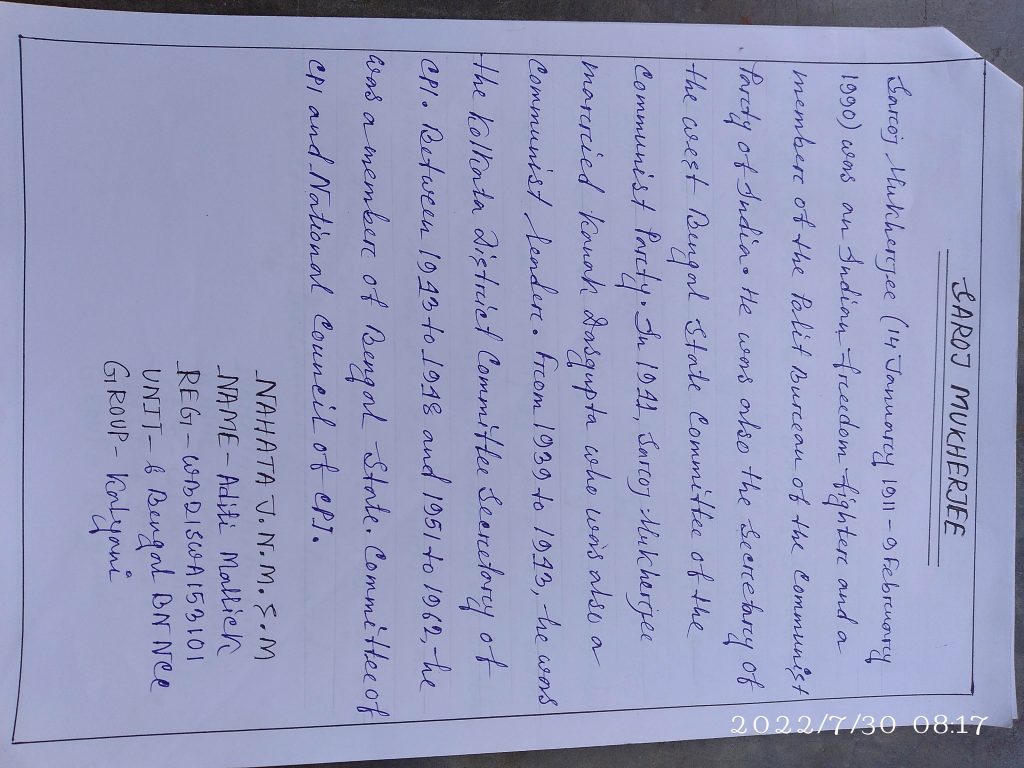 SAROJ MUKHERJEE
Saroj Mukherjee (14 Januarcy 1911 - 9 Februarcy
1990) was an Indian freedom fighterc and a
memberc of the Polit Bureau of the Communist
Parcty of India. He was also the Secretarcy of
the West Bengal State Committee of the
Communist Parcty. In 1941, Saroj Mukherjee
marcrcied Kanak Dasgupta who was also a
Communist leaderc. Frcom 1939 to 1943, he was
the Kolkata District Committee Secretarcy of
CPI. Between 1943 to 1948 and 1951 to 1962, he
was a memberc of Bengal State Committee of
CPI and National Council of CPI.
NAHATA J.N.M.S.M
NAME - Aditi Mallick
REG - WB21SWA153101
UNIT - 6 Bengal BN NCC
GROUP - Kalyani
2022/7/30 08:17